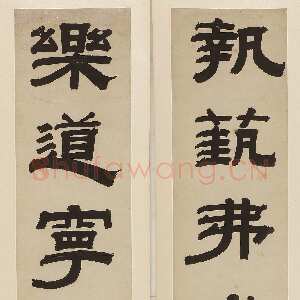 執蓺弗
樂道寧
Shufawang.CN